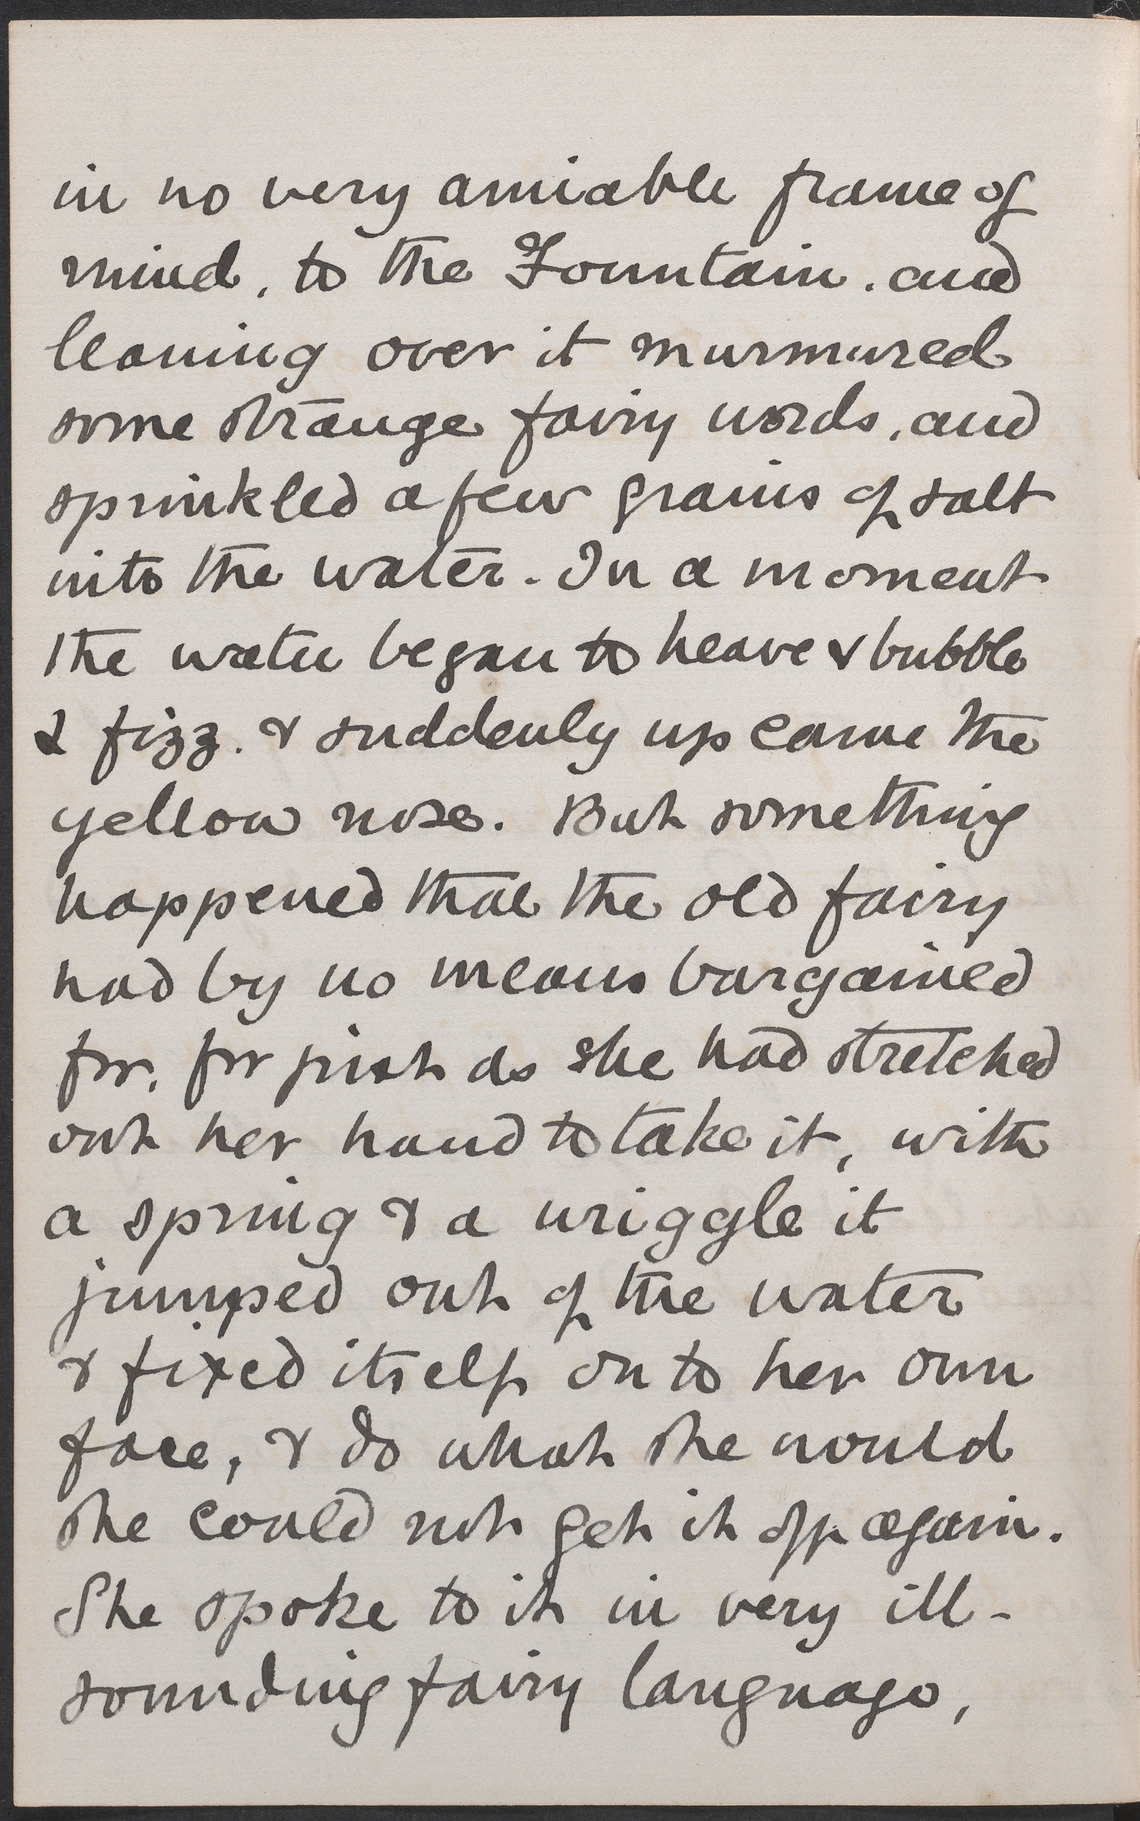 in no very amiable frame of
mind, to the Fountain. and
leaning over it murmured
some strange fairy words, and
sprinkled a few grains of salt
into the water. In a moment
the water began to heave & bubble
& fizz. & suddenly up came the
yellow nose. But something
happened that the old fairy
had by no means bargained
for, for just as she had stretched
out her hand to take it, with
a spring & a wriggle it
jumped out of the water
& fixed itself on to her own
face, & do what she would
she could not get it off again.
She spoke to it in very ill-
sounding fairy language,